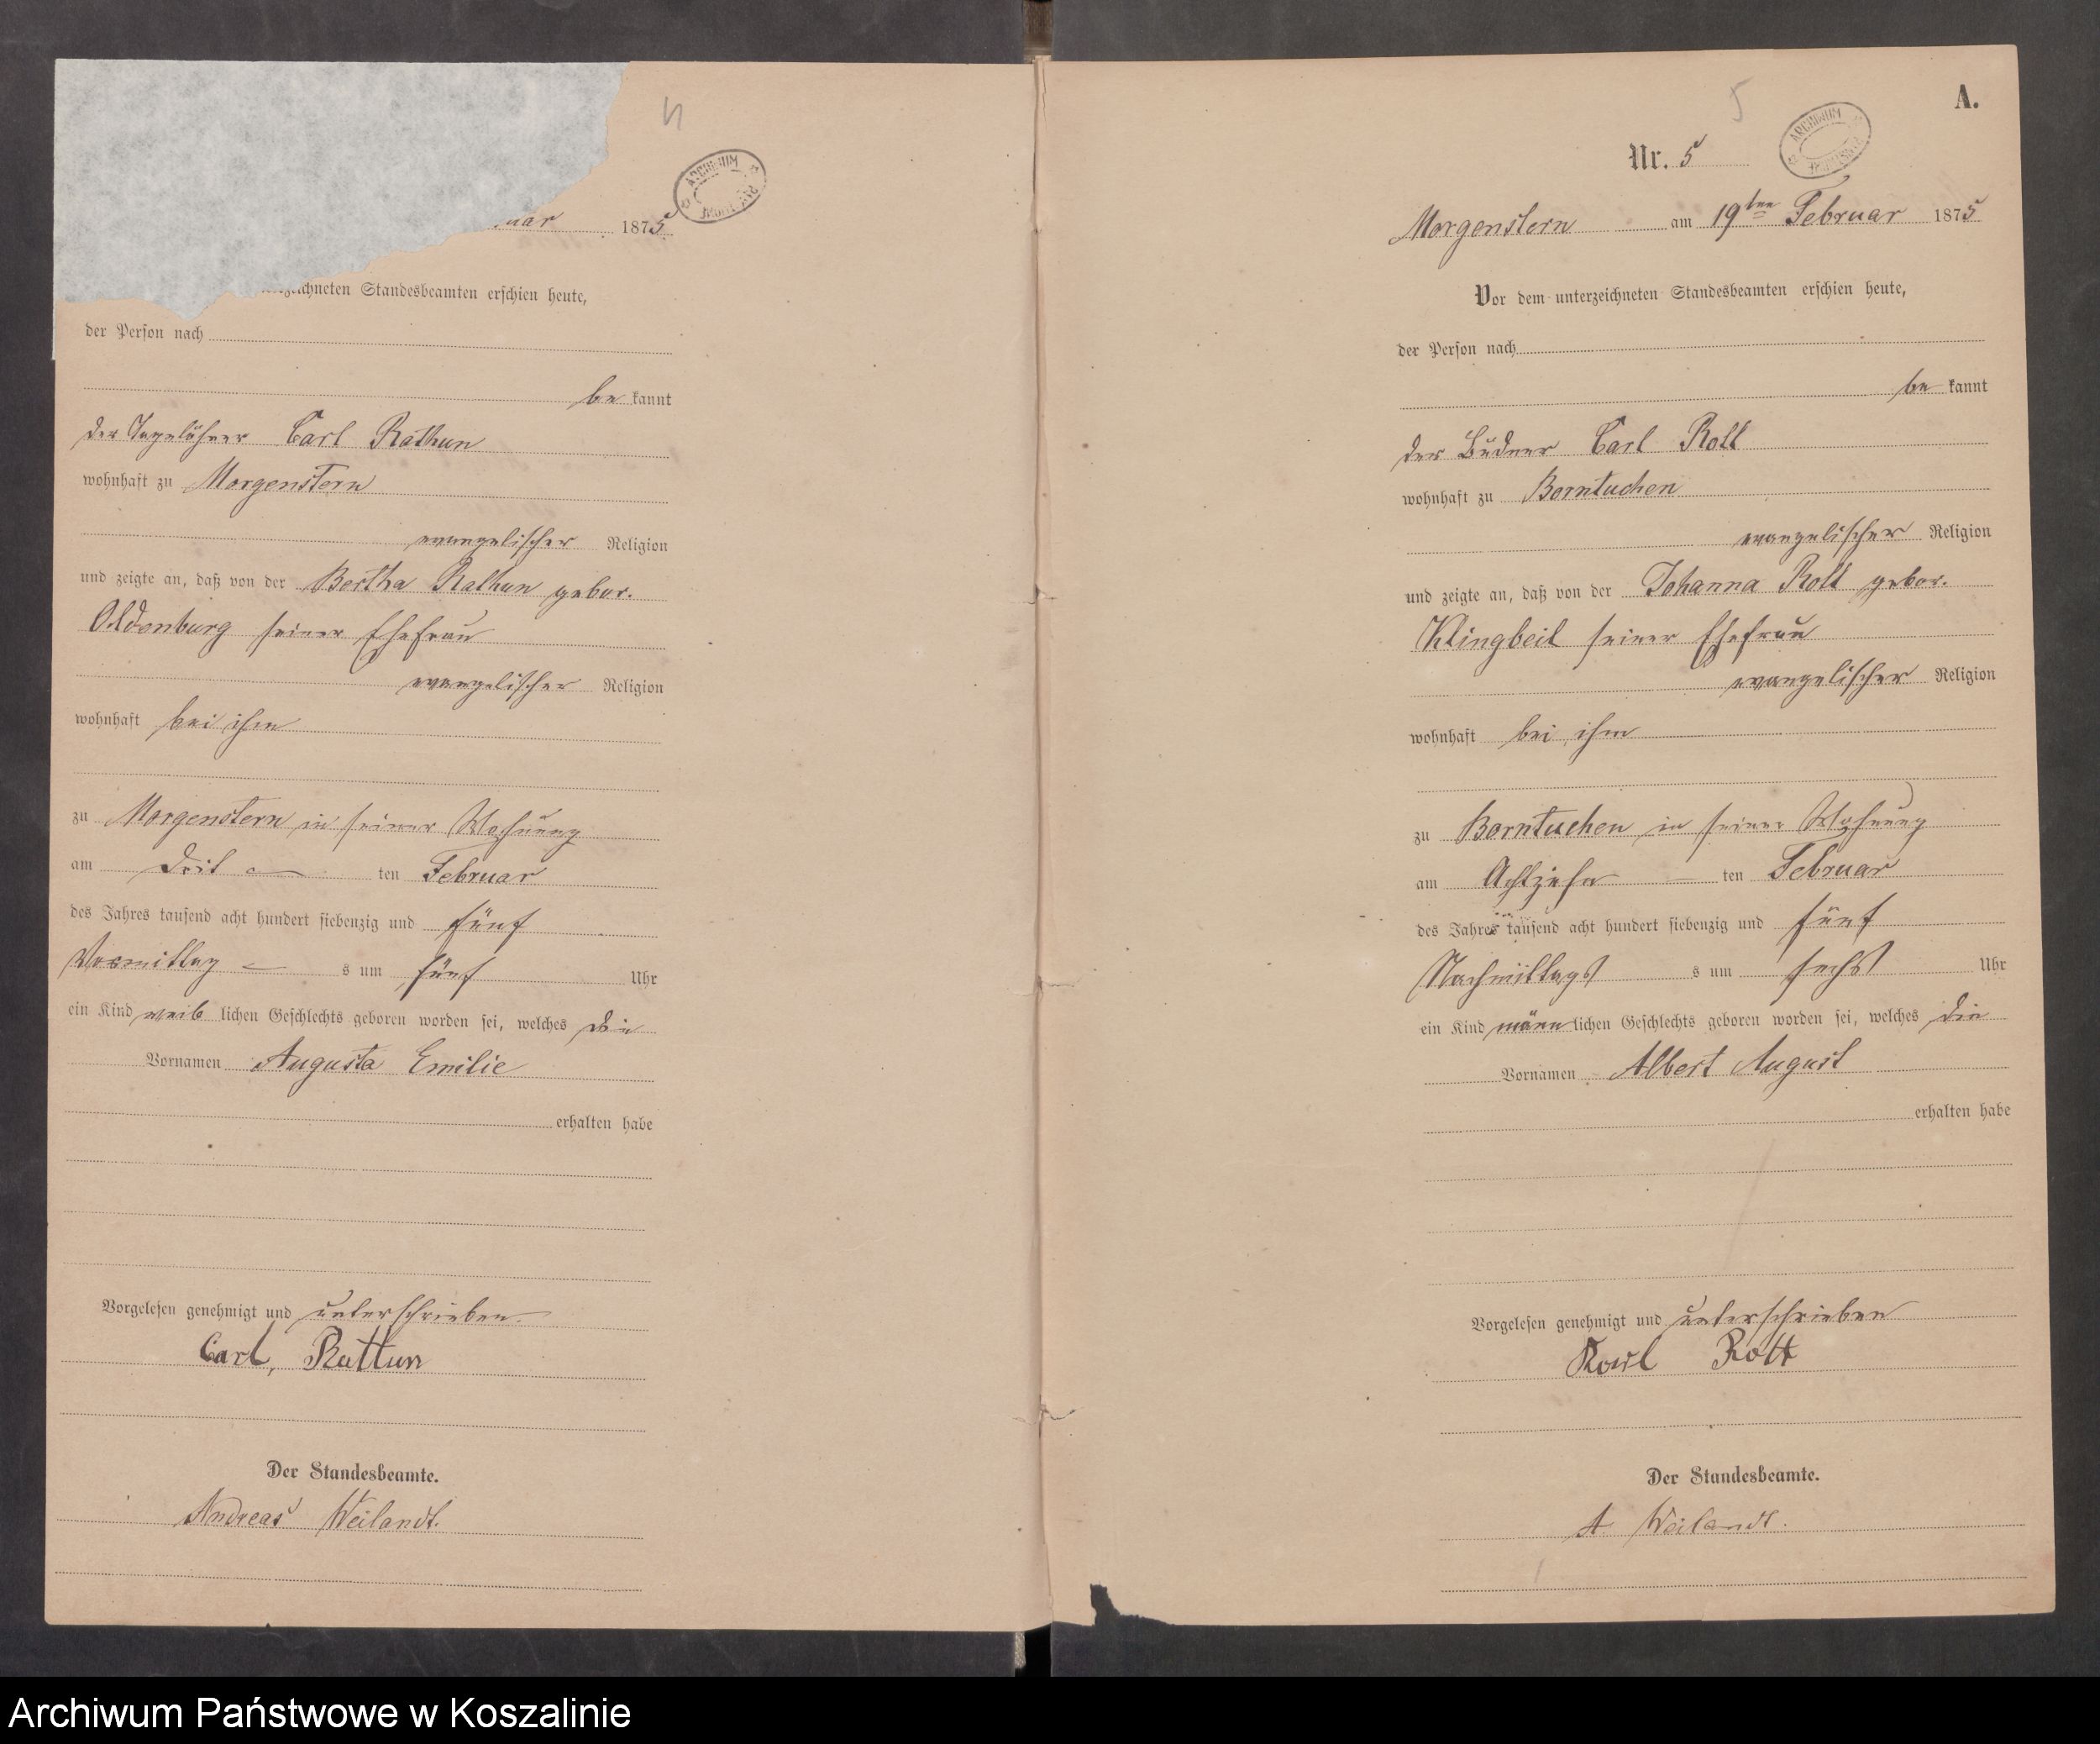 4
ARCHIWUM
uar 1875
zeichneten Standesbeamten erschien heute,
der Person nach
be kannt
der Tagelöhner Carl Rathun
wohnhaft zu Morgenstern
evangelischer Religion
und zeigte an, daß von der Bertha Rathun gebor.
Oldenburg seiner Ehefrau
evangelischer Religion
wohnhaft bei ihm
zu Morgenstern in seiner Wohnung
am ten Februar
des Jahres tausend acht hundert siebenzig und fünf
Vormittag s um fünf Uhr
ein Kind weib lichen Geschlechts geboren worden sei, welches die
Vornamen Augusta Emilie
erhalten habe
Vorgelesen genehmigt und unterschrieben.
Carl, Rattun
Der Standesbeamte.
Andreas Weilandt.
5
A.
ARCHIWUM
Nr. 5
Morgenstern am 19ten Februar 1875
Vor dem unterzeichneten Standesbeamten erschien heute,
der Person nach
be kannt
der Büdner Carl Rott
wohnhaft zu Borntuchen
evangelischer Religion
und zeigte an, daß von der Johanna Rott gebor.
Klingbeil seiner Ehefrau
evangelischer Religion
wohnhaft bei ihm
zu Borntuchen in seiner Wohnung
am Achtzehn ten Februar
des Jahres tausend acht hundert siebenzig und fünf
Nachmittags s um sechs Uhr
ein Kind männ lichen Geschlechts geboren worden sei, welches die
Vornamen Albert August
erhalten habe
Vorgelesen genehmigt und unterschrieben
Karl Rott
Der Standesbeamte.
A Weilandt.
Archiwum Państwowe w Koszalinie